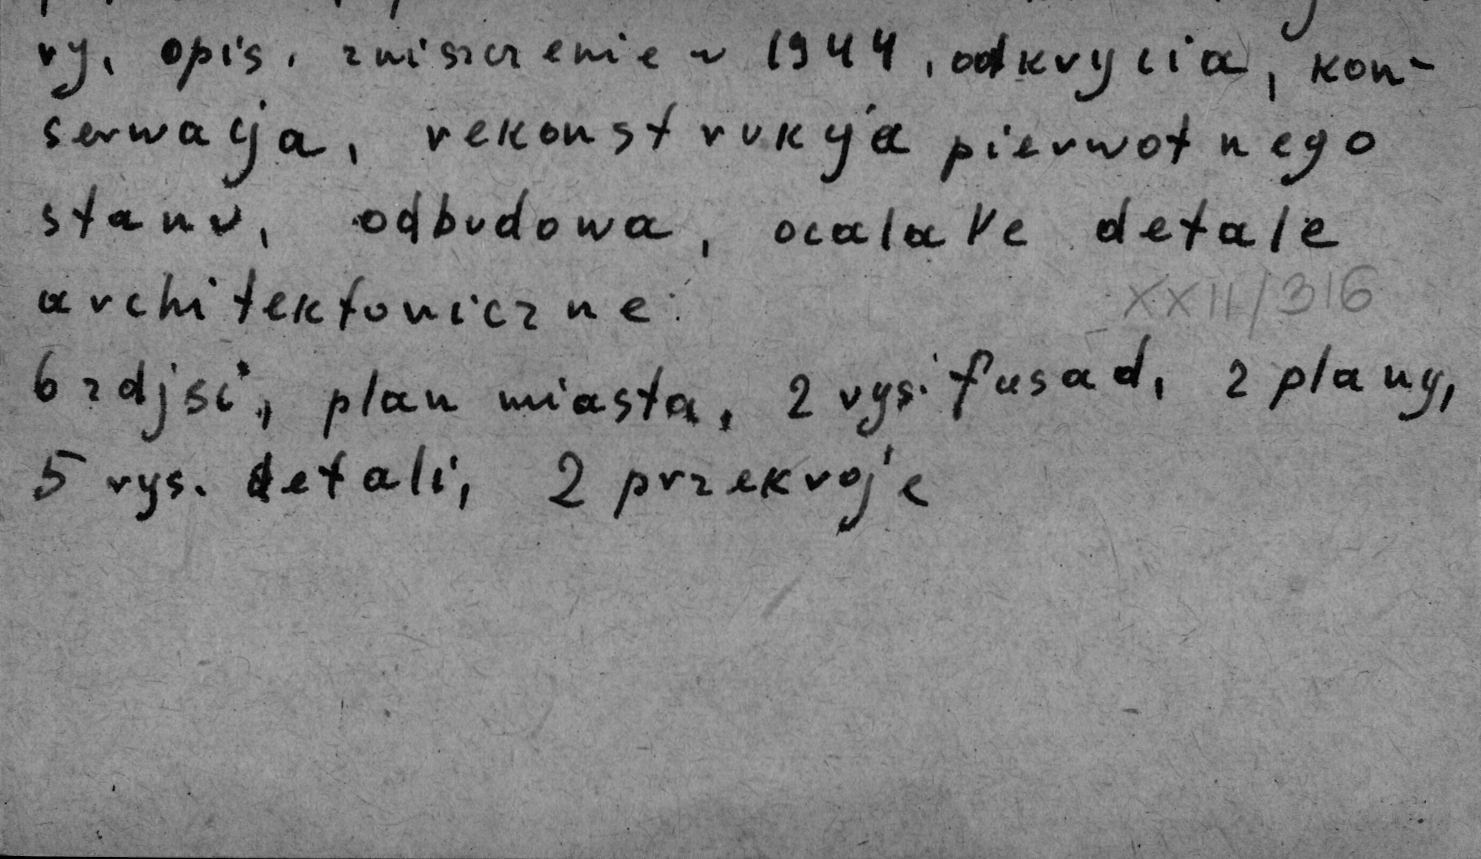 ry, opis, zniszczenie w 1944, odkrycia, kon-
serwacja, rekonstrukcja pierwotnego
stanu, odbudowa, ocalałe detale
architektoniczne.
XXII/316
6 zdjęć, plan miasta, 2 rys. fasad, 2 plany,
5 rys. detali, 2 przekroje